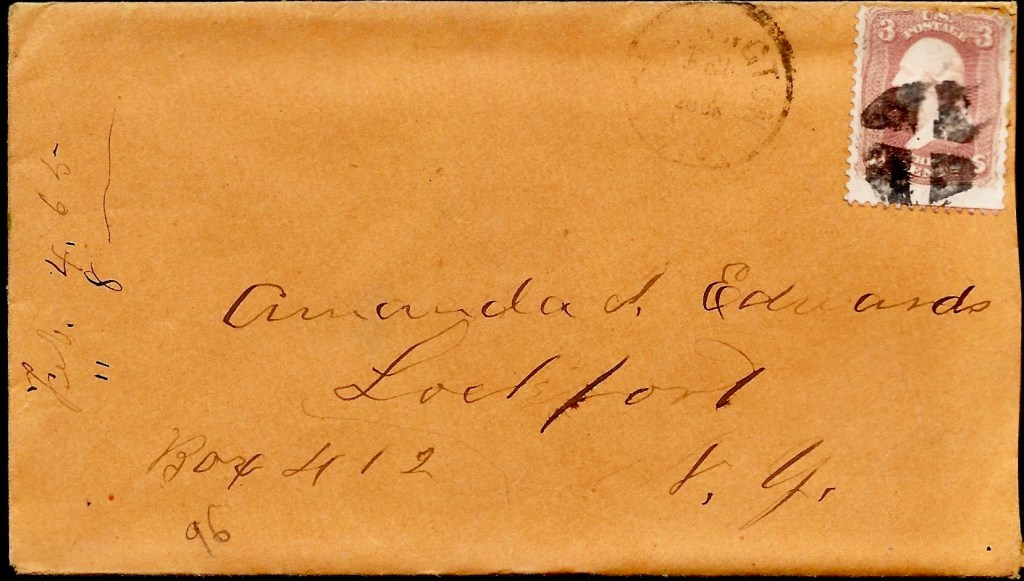 U.S.
POSTAGE
3 3
Feb. 4, 65
" 8
Amanda J. Edwards
Lockport
Box 412
N. Y.
96